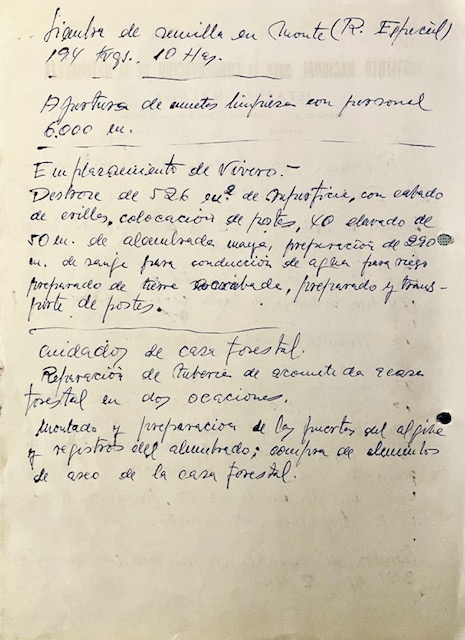 Siembra de semilla en Monte (R. Especial)
194 Kgs.. 10 Has.
Apertura de limpieza con personal
6.000 m.
Emplazamiento de Vivero.-
Destroze de 526 m² de superficie, con cabado
de orillas, colocación de postes, 40 clavado de
50 m. de alambrada maya, preparación de 290
m. de sanja para conducción de agua para riego
preparado de tierra preparado y trans-
porte de postes.
Cuidados de casa forestal.
Reparación de tuberia de acometida a casa
forestal en dos ocaciones.
Montado y preparacion de las puertas del algibe
y registros del alumbrado; compra de elementos
de aseo de la casa forestal.